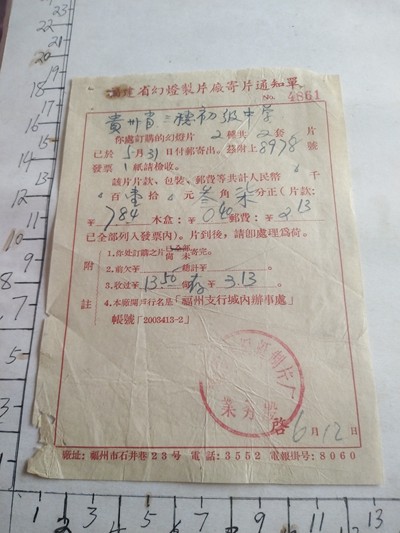 福建省幻燈製片廠寄片通知單
No. 4861
貴州省三穗初級中学
你處訂購的幻燈片 2種共2套 片
已於 5月31日付郵寄出。茲附上8978號
發票1紙請檢收。
該片片款、包裝、郵費等共計人民幣 千
百壹拾 元叁角柒分正(片款:
￥784 木盒:￥040 郵費:￥213
已全部列入發票內)。片到後,請卽處理爲荷。
附註
1.你处訂購之片已全部 尚未 寄完。
2.前欠￥ 總計￥
3.收过￥13.50 尚存￥3.13.
4.本廠開戶行名是「福州支行城內辦事處」
帳號「2003413-2」
製片厂
業务
啓 6月12日
廠址:福州市石井巷23号 電話:3552 電報掛号:8060